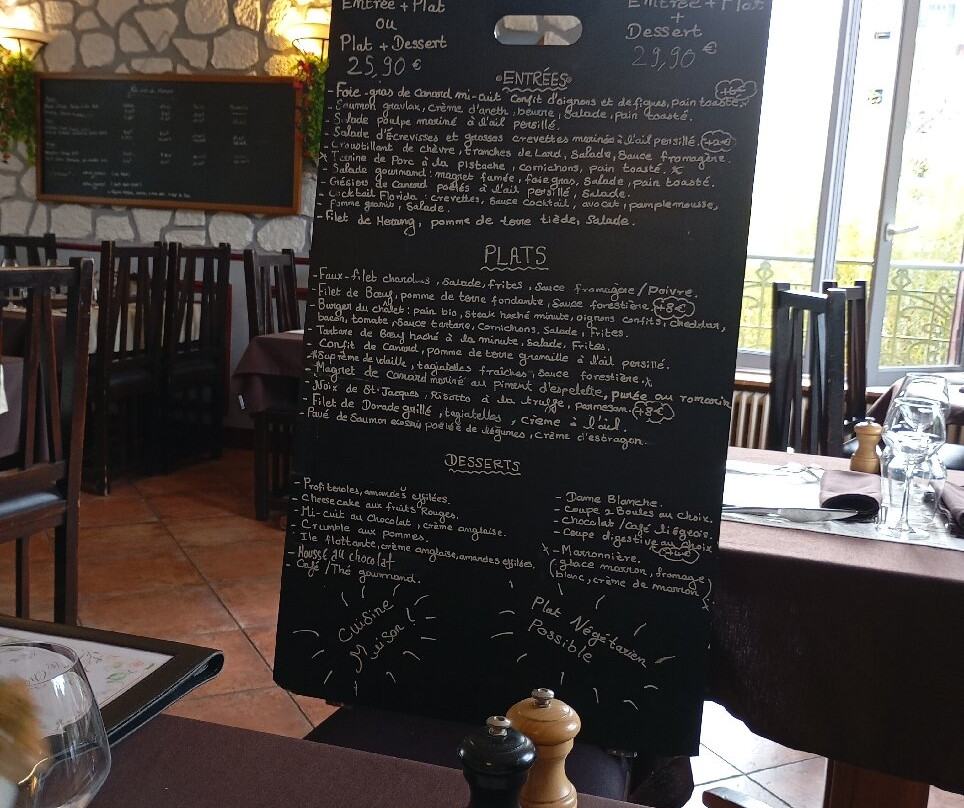 Entrée + Plat
ou
Plat + Dessert
25,90 €
Entrée + Plat
+
Dessert
29,90 €
ENTRÉES
- Foie-gras de canard mi-cuit confit d'oignons et de figues, pain toasté.
- Saumon gravlax, crème d'aneth, beurre, Salade, pain toasté.
- Salade poulpe mariné à l'ail persillé.
- Salade d'Écrevisses et grosses crevettes marinées à l'ail persillé. +2€
- Croustillant de chèvre, tranches de Lard, Salade, Sauce fromagère.
- Terrine de Porc à la pistache, cornichons, pain toasté.
- Salade gourmand: magret fumée, foie gras, Salade, pain toasté.
- Gésiers de Canard poêlés à l'ail persillé, Salade.
- Cocktail Florida: crevettes, sauce cocktail, avocat, pamplemousse,
Pomme granis, Salade.
- Filet de Hareng, pomme de terre tiède, Salade.
PLATS
- Faux-filet charolais, Salade, frites, Sauce fromagère/Poivre.
- Filet de Bœuf, pomme de terre fondante, Sauce forestière. +8€
- Burger du châlet: pain bio, steak haché minute, oignons confits, cheddar,
bacon, tomate, Sauce tartare, Cornichons, Salade, Frites.
- Tartare de Bœuf haché à la minute, Salade, Frites.
- Confit de Canard, pomme de terre grenaille à l'ail persillé.
- Suprême de volaille, tagliatelles fraîches, Sauce forestière.
- Magret de canard mariné au piment d'espelette, purée au romarin
- Noix de St-Jacques, Risotto à la truffe, parmesan. +8€
- Filet de Dorade grillé, tagliatelles, crème à l'ail.
- Pavé de Saumon poêlée de légumes, crème d'estragon.
DESSERTS
- Profiteroles, amandes effilées.
- Cheesecake aux fruits Rouges.
- Mi-cuit au Chocolat, crème anglaise.
- Crumble aux pommes.
- Ile flottante, crème anglaise, amandes effilées.
- Mousse au chocolat
- Café/Thé gourmand.
- Dame Blanche.
- Coupe 2 Boules au Choix.
- Chocolat/Café liégeois.
- Coupe digestive au Choix
- Marronnière.
(glace marron, fromage
blanc, crème de marron)
Cuisine
Maison!
Plat Végétarien
Possible